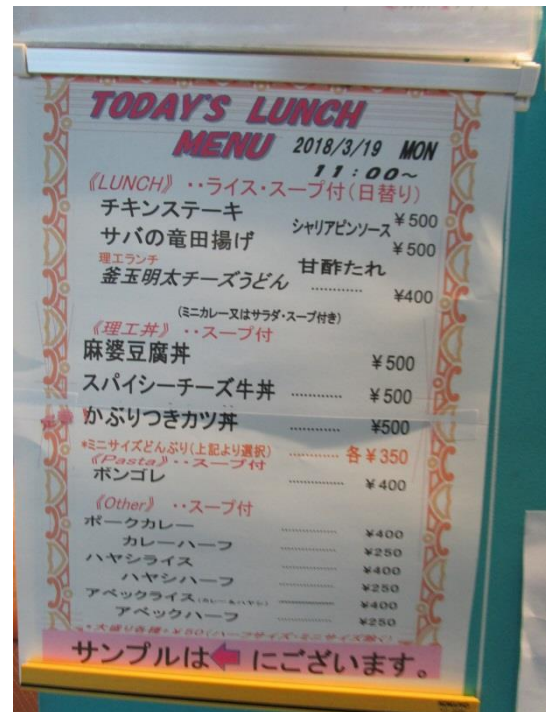 TODAY'S LUNCH
MENU 2018/3/19 MON
11:00～
《LUNCH》‥ライス・スープ付(日替り)
チキンステーキ シャリアピンソース ¥500
サバの竜田揚げ 甘酢たれ ¥500
理工ランチ
釜玉明太チーズうどん ………… ¥400
(ミニカレー又はサラダ・スープ付き)
《理工丼》‥スープ付
麻婆豆腐丼 ¥500
スパイシーチーズ牛丼 ………… ¥500
かぶりつきカツ丼 ………… ¥500
*ミニサイズどんぶり(上記より選択) ………… 各¥350
《Pasta》‥スープ付
ボンゴレ ………… ¥400
《Other》‥スープ付
ポークカレー ………… ¥400
カレーハーフ ………… ¥250
ハヤシライス ………… ¥400
ハヤシハーフ ………… ¥250
アベックライス(カレー&ハヤシ) ………… ¥400
アベックハーフ ………… ¥250
*大盛り各種+¥50(ハーフサイズ・ミニサイズ除く)
サンプルは←にございます。